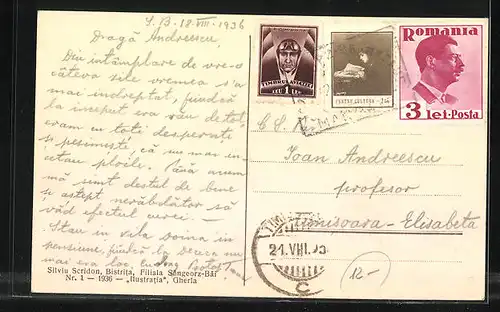 S.B. 18-VIII-1936
Dragă Andreescu,
Din întâmplare de vre-o
câteva zile vremea s'a
mai îndreptat, fiindcă
la început era rău de tot
eram cu toții desperați
și pesimiști că nu mai în-
cetau ploile. Până acum
mă simt destul de bine
și aștept nerăbdător să
văd efectul curei —
Stau in vila Doina in
pensiune, fiindcă la
mai era loc
Silviu Scridon, Bistrița, Filiala Sângeorz-Băi
Nr. 1 — 1936 — „Ilustrația", Gherla
TIMBRUL AVIAȚIEI
LEU 1 LEU
PENTRU CULTURĂ
Romania
3 lei·Posta
Ioan Andreescu
profesor
Timișoara-Elisabeta
TIMI
21.VIII.93
C
12-